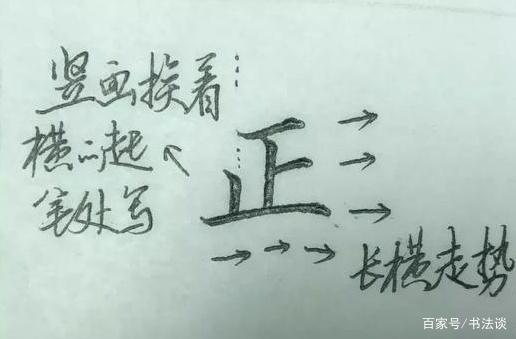 竖画挨着
横的起
笔处写
正
长横走势
百家号/书法谈